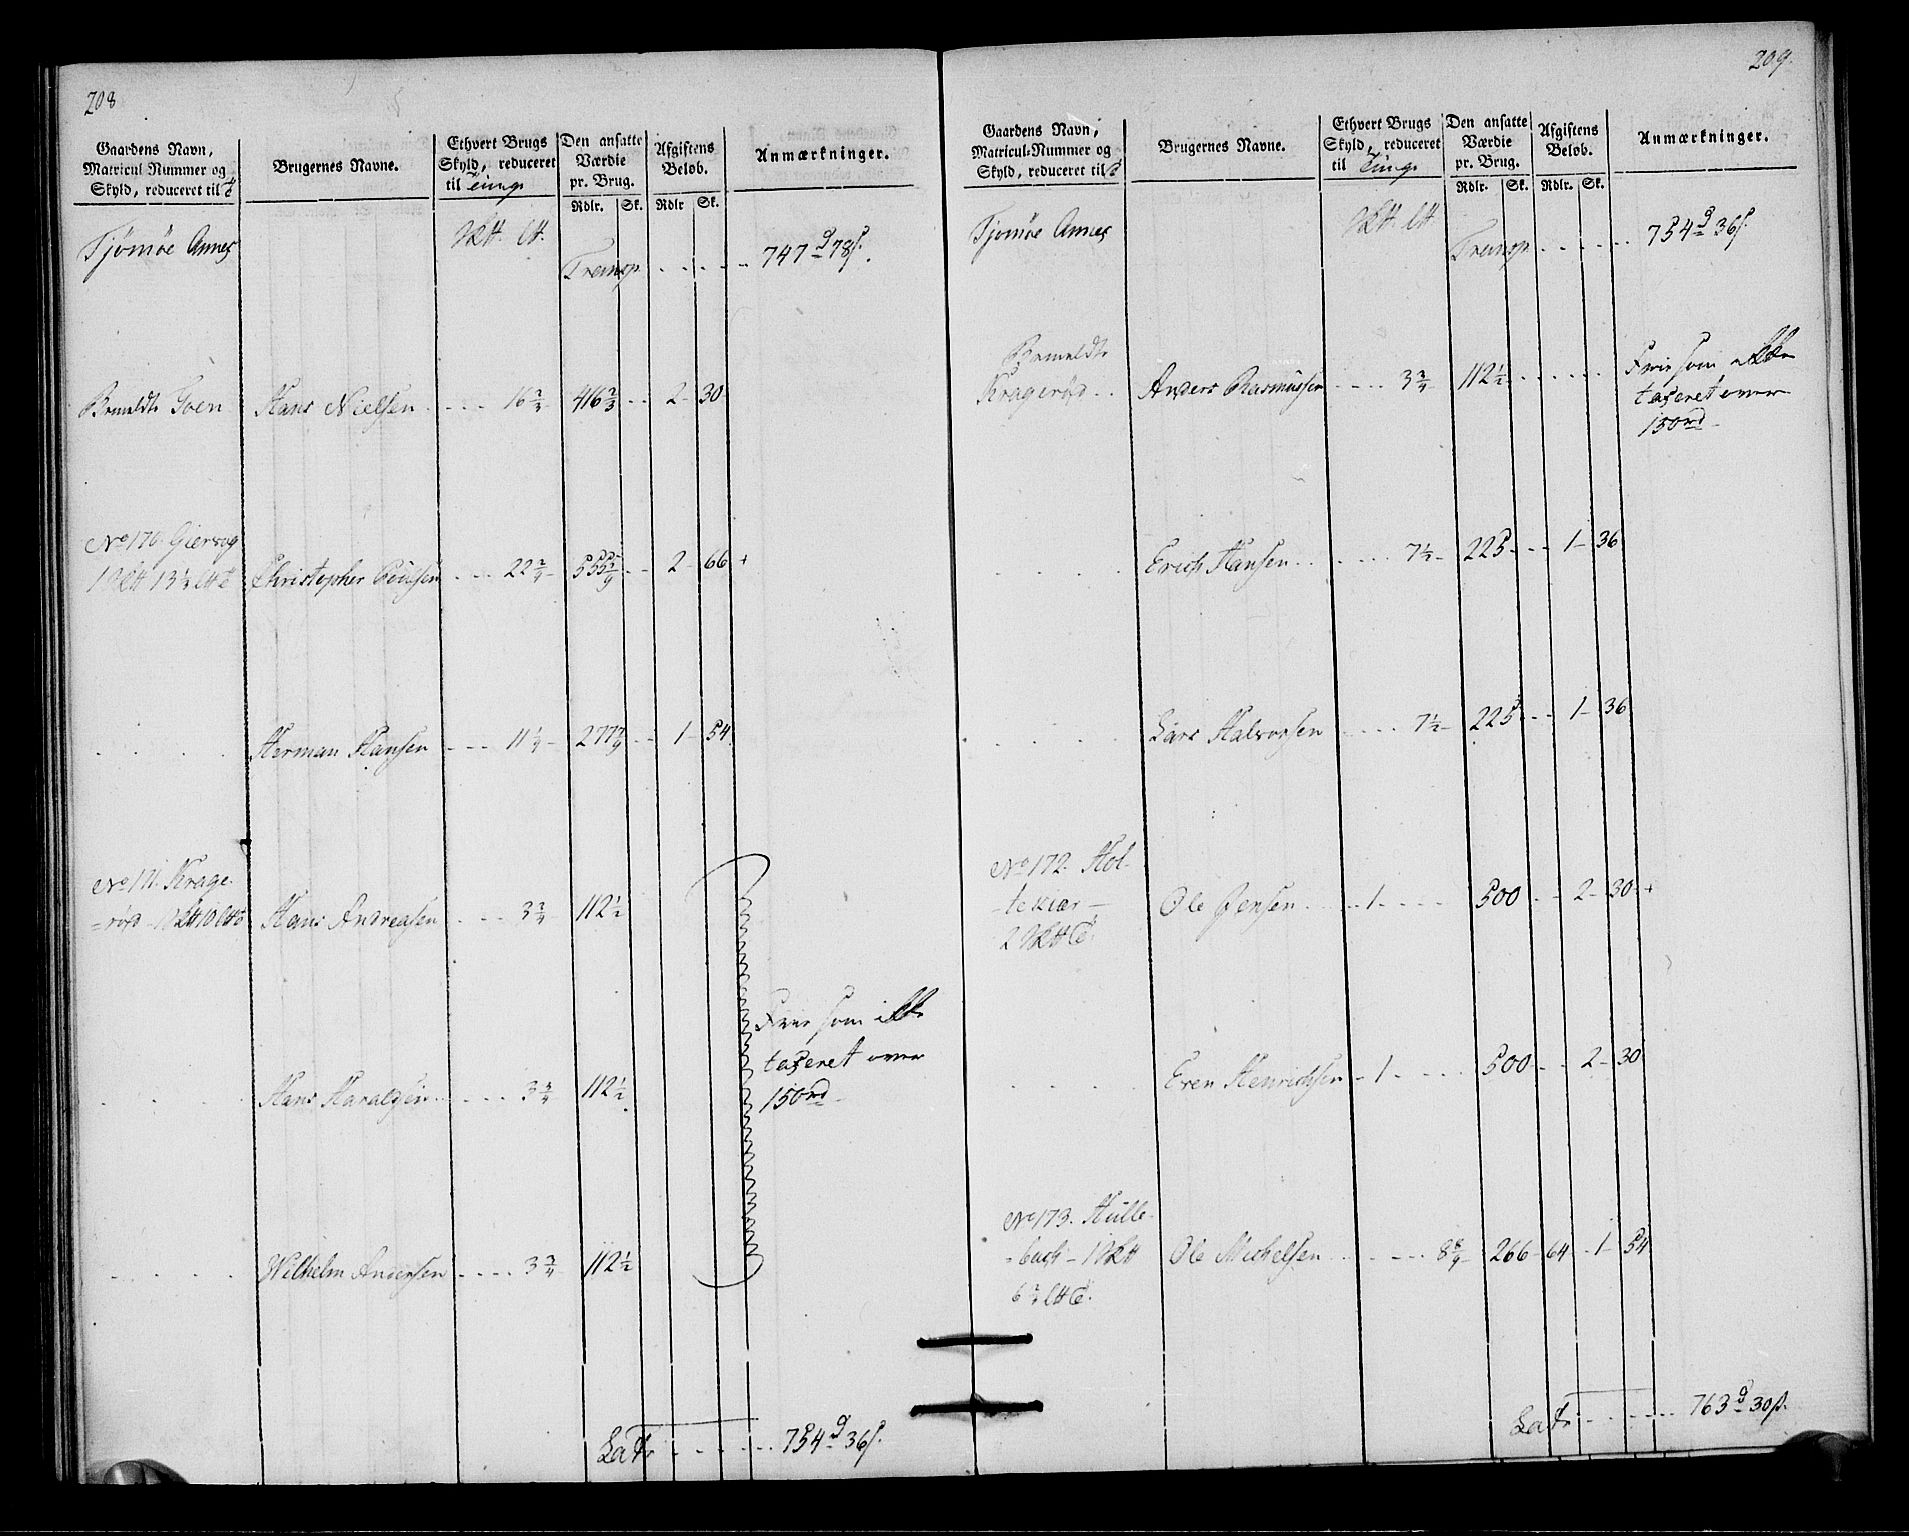 208
Gaardens Navn, Matricul Nummer og Skyld, reduceret til
Brugernes Navne.
Ethvert Brugs Skyld, reduceret til Tunge
Den ansatte Værdie pr. Brug.
Rdlr. Sk.
Afgiftens Beløb.
Rdlr Sk.
Anmærkninger.
Tjømøe Annex
Transp. 747 d 78 s.
Bemeldte Soen Hans Nielsen 16 2/3 416 2/3 2 30
No 176. Giervog
Christopher Poulsen 22 2/9 555 5/9 2 66 +
Herman Hansen 11 1/9 277 7/9 1 54
No 171. Krage-
=rød Hans Andreasen 3 3/4 112 1/2
Frie som ikke
taxeret over
150 rd
Hans Haraldsen 3 3/4 112 1/2
Wilhelm Andersen 3 3/4 112 1/2
Latr. 754 d 36 s.
209.
Gaardens Navn, Matricul-Nummer og Skyld, reduceret til
Brugernes Navne.
Ethvert Brugs Skyld, reduceret til Tunge
Den ansatte Værdie pr. Brug.
Rdlr. Sk.
Afgiftens Beløb.
Rdlr. Sk.
Anmærkninger.
Tjømøe Annex
Transp. 754 d 36 s.
Bemeldte
Kragerød Anders Rasmussen 3 3/4 112 1/2
Frie som ikke
taxeret over
150 rd
Erich Hansen 7 1/2 225 1 36
Lars Halvorsen 7 1/2 225 1 36
No 172. Hol-
=tekiær Ole Jensen 1 500 2 30 +
Even Henrichsen 1 500 2 30
No 173. Hulle-
=bach Ole Michelsen 8 8/9 266 64 1 54
Latr. 763 d 30 s.